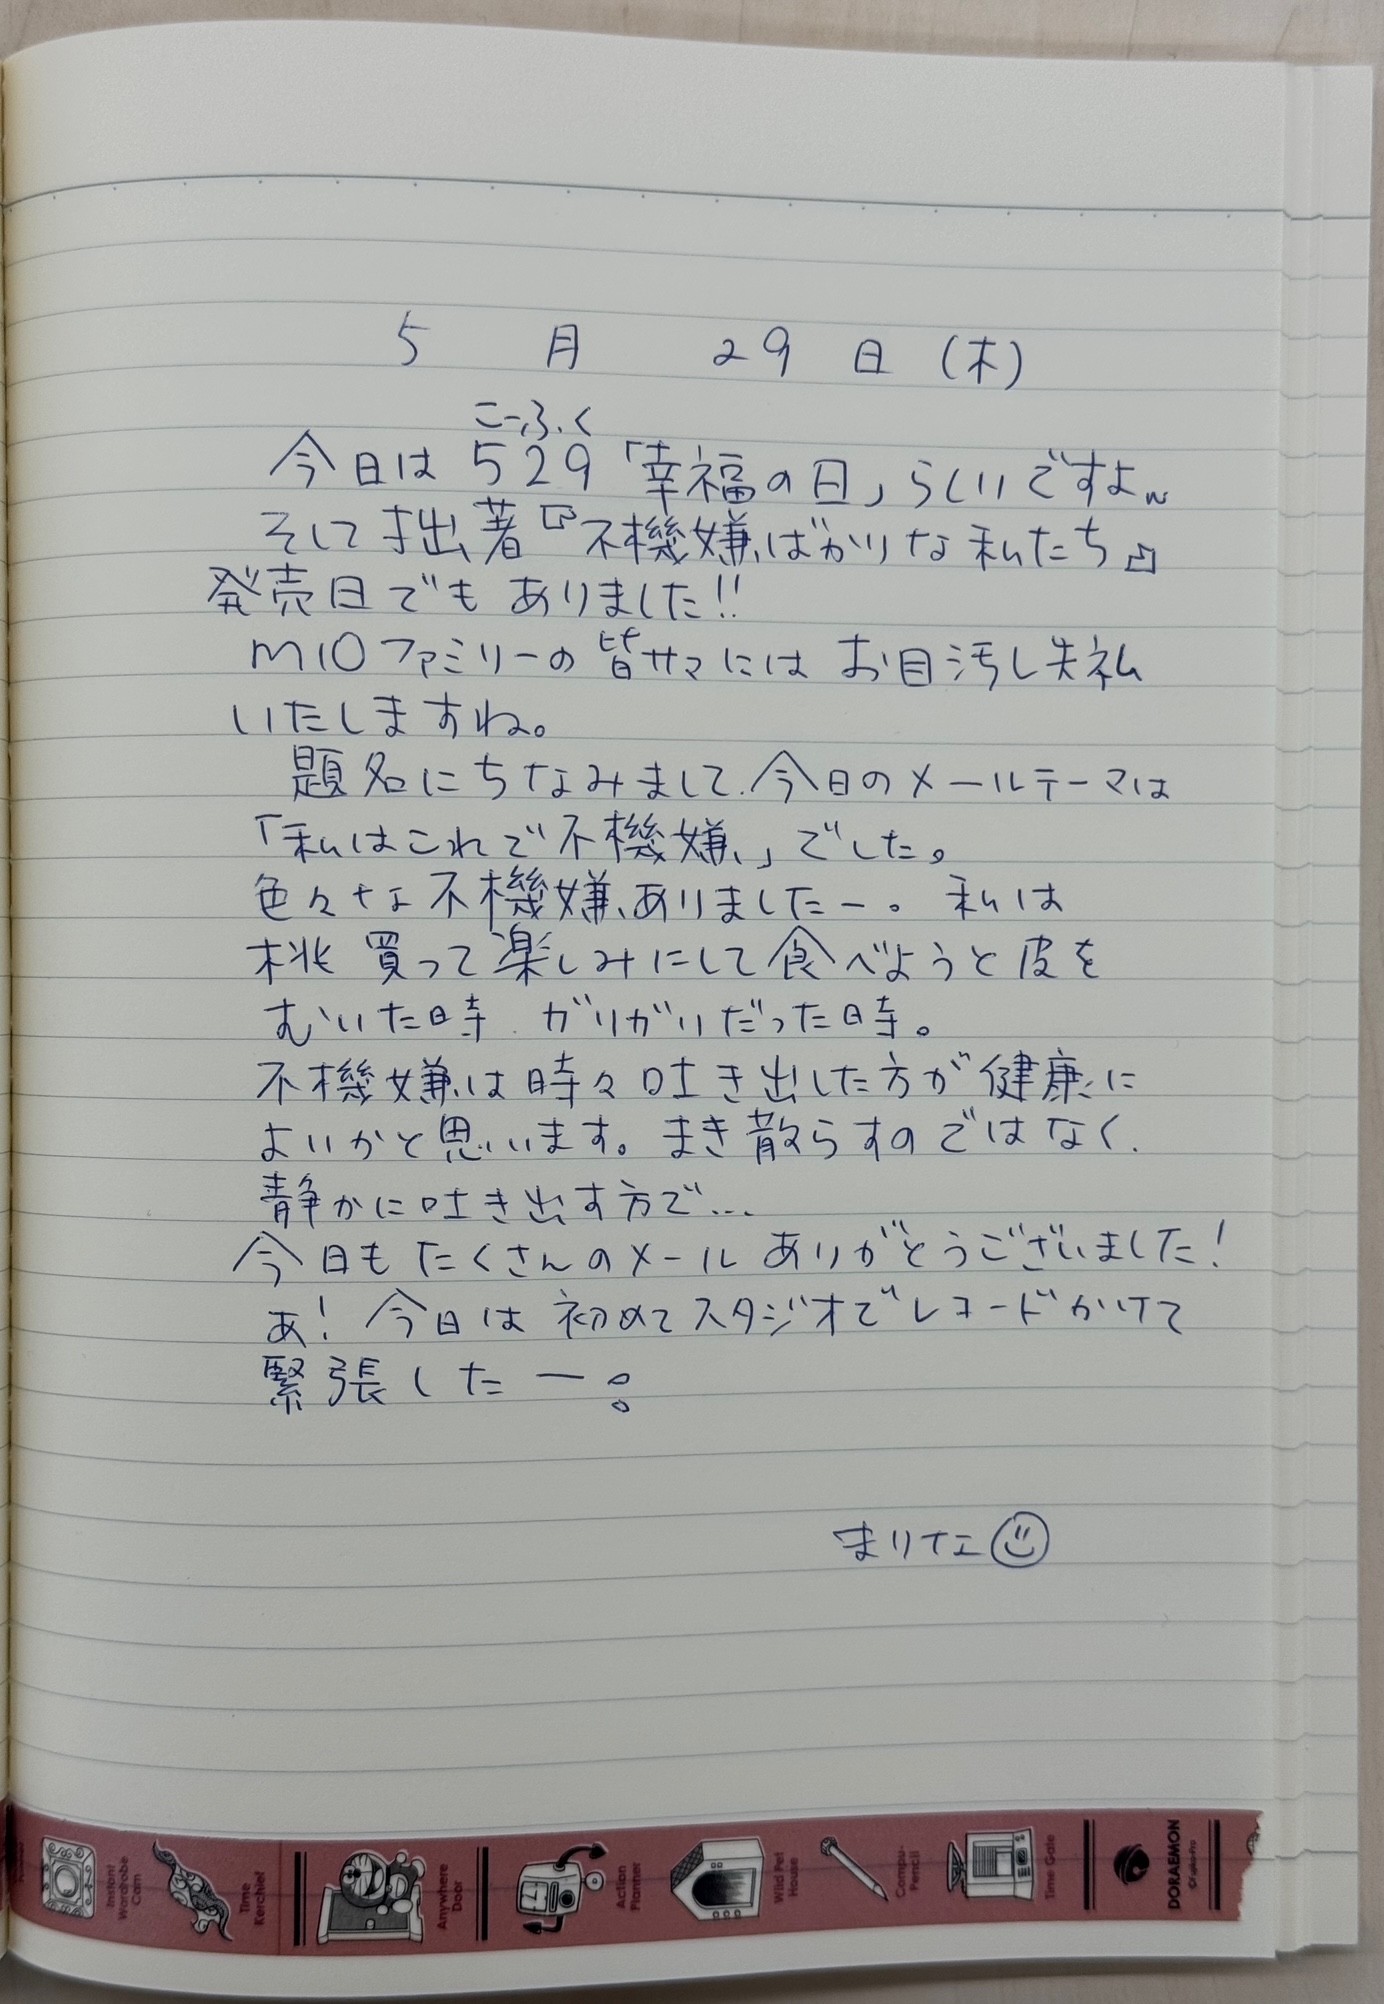 5月29日(木)
こーふく
今日は529「幸福の日」らしいですよ~
そして拙著『不機嫌ばかりな私たち』
発売日でもありました!!
M10ファミリーの皆サマにはお目汚し失礼
いたしますね。
題名にちなみまして、今日のメールテーマは
「私はこれで不機嫌」でした。
色々な不機嫌ありましたー。私は
桃買って楽しみにして食べようと皮を
むいた時、ガリガリだった時。
不機嫌は時々吐き出した方が健康に
よいかと思います。まき散らすのではなく、
静かに吐き出す方で…
今日もたくさんのメールありがとうございました!
あ!今日は初めてスタジオでレコードかけて
緊張したー。
まりナエ
Instant Wardrobe Cam
Time Kerchief
Anywhere Door
Action Planner
Wild Pet House
Compu-Pencil
Time Gate
DORAEMON
©Fujiko-Pro